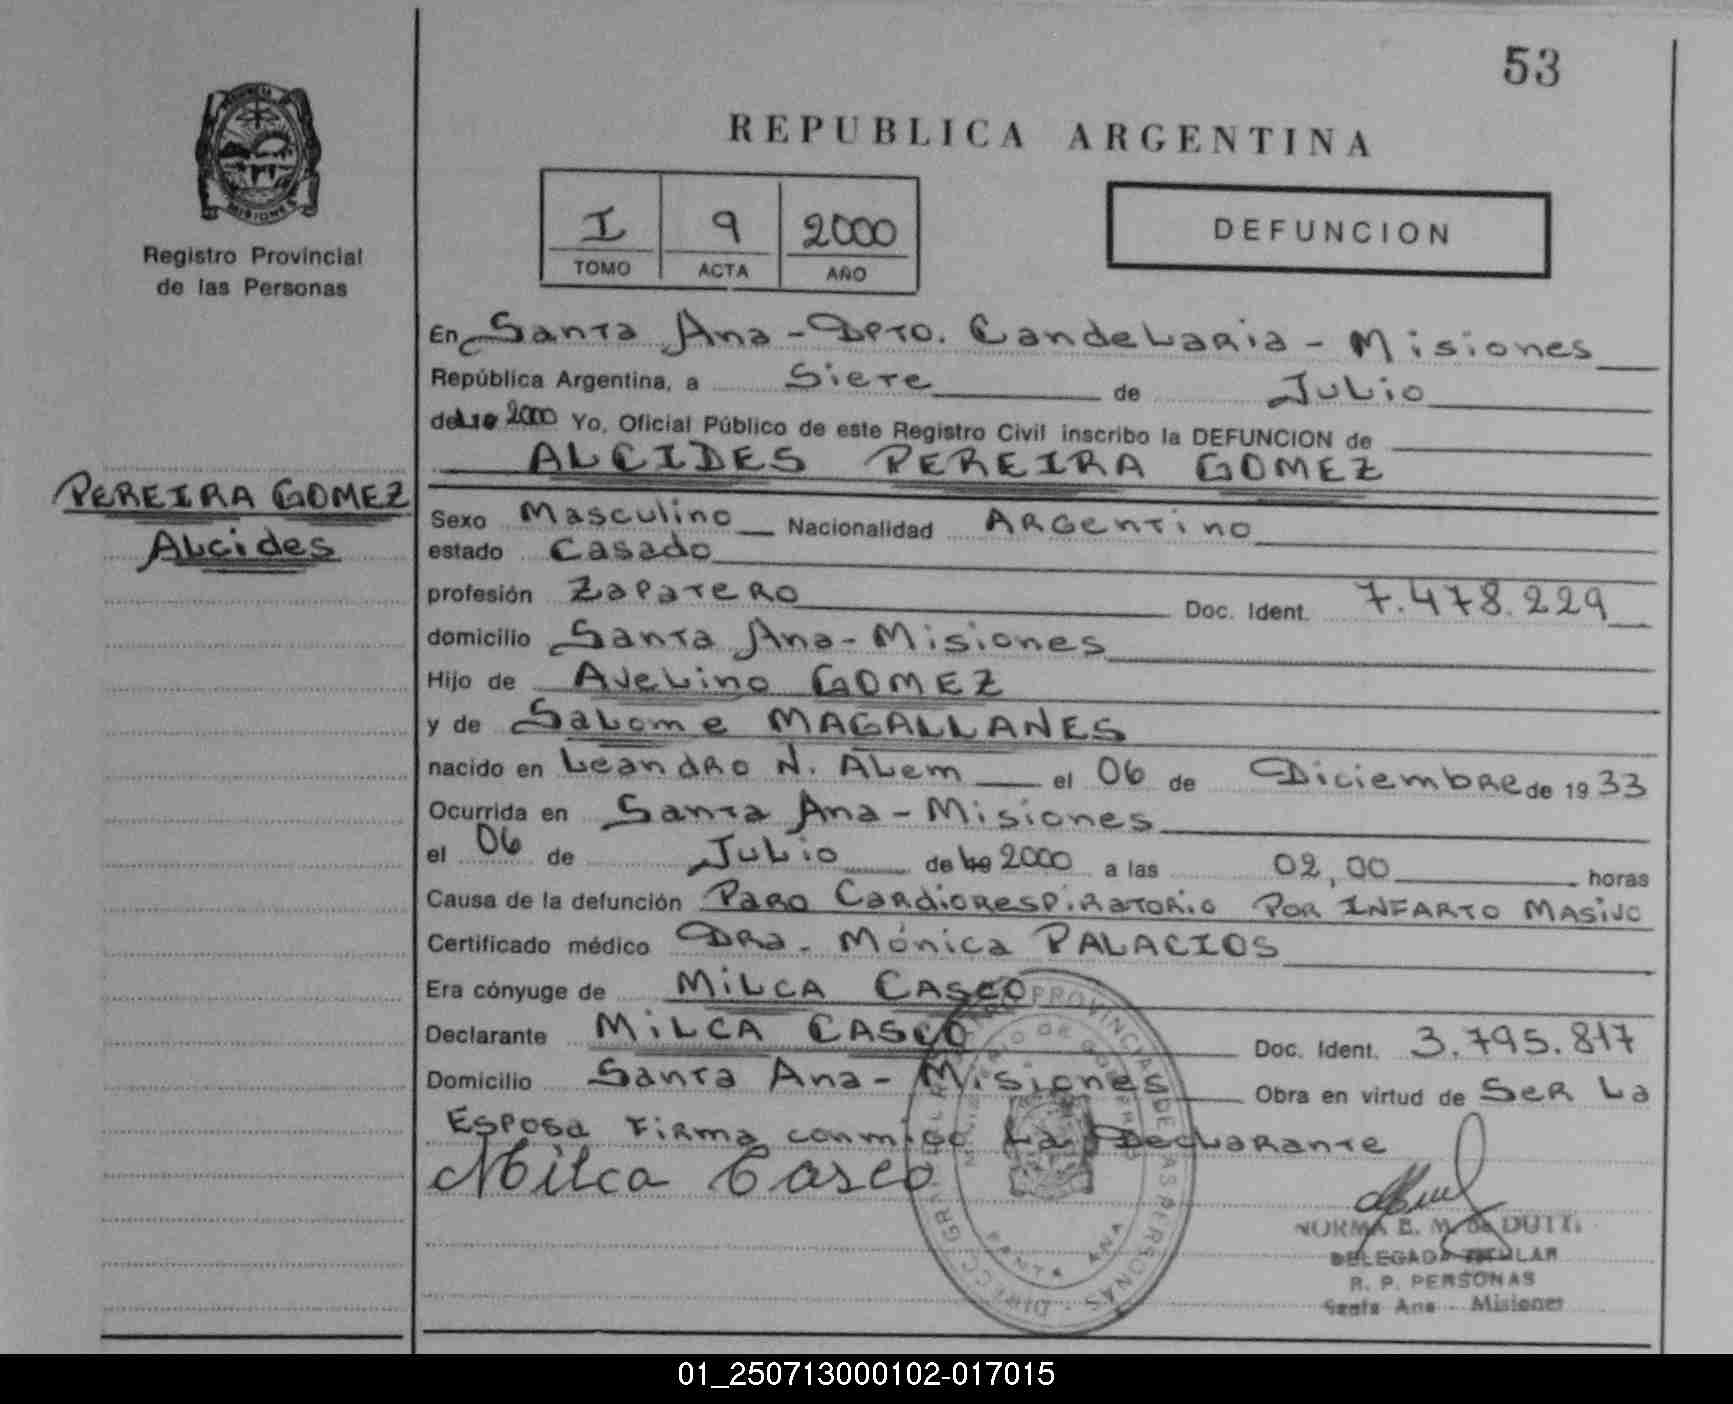 53
REPUBLICA ARGENTINA
PROVINCIA
MISIONES
Registro Provincial
de las Personas
I 9 2000
TOMO ACTA AÑO
DEFUNCION
En Santa Ana - Dpto. Candelaria - Misiones
República Argentina, a Siete de Julio
del 2000 Yo, Oficial Público de este Registro Civil inscribo la DEFUNCION de
ALCIDES PEREIRA GOMEZ
PEREIRA GOMEZ
Alcides
Sexo Masculino Nacionalidad Argentino
estado Casado
profesión Zapatero Doc. Ident. 7.478.229
domicilio Santa Ana - Misiones
Hijo de Avelino GOMEZ
y de Salome MAGALLANES
nacido en Leandro N. Alem el 06 de Diciembre de 1933
Ocurrida en Santa Ana - Misiones
el 06 de Julio de 2000 a las 02,00 horas
Causa de la defunción Paro Cardiorespiratorio por INFARTO MASIVO
Certificado médico Dra. Mónica PALACIOS
Era cónyuge de MILCA CASCO
Declarante MILCA CASCO Doc. Ident. 3.795.817
Domicilio Santa Ana - Misiones Obra en virtud de Ser La
Esposa Firma conmigo La Declarante
Milca Casco
PROVINCIAL DE LAS PERSONAS
SANTA ANA
NORMA B. M. de DUTTI
DELEGADA TITULAR
R. P. PERSONAS
Santa Ana - Misiones
01_250713000102-017015